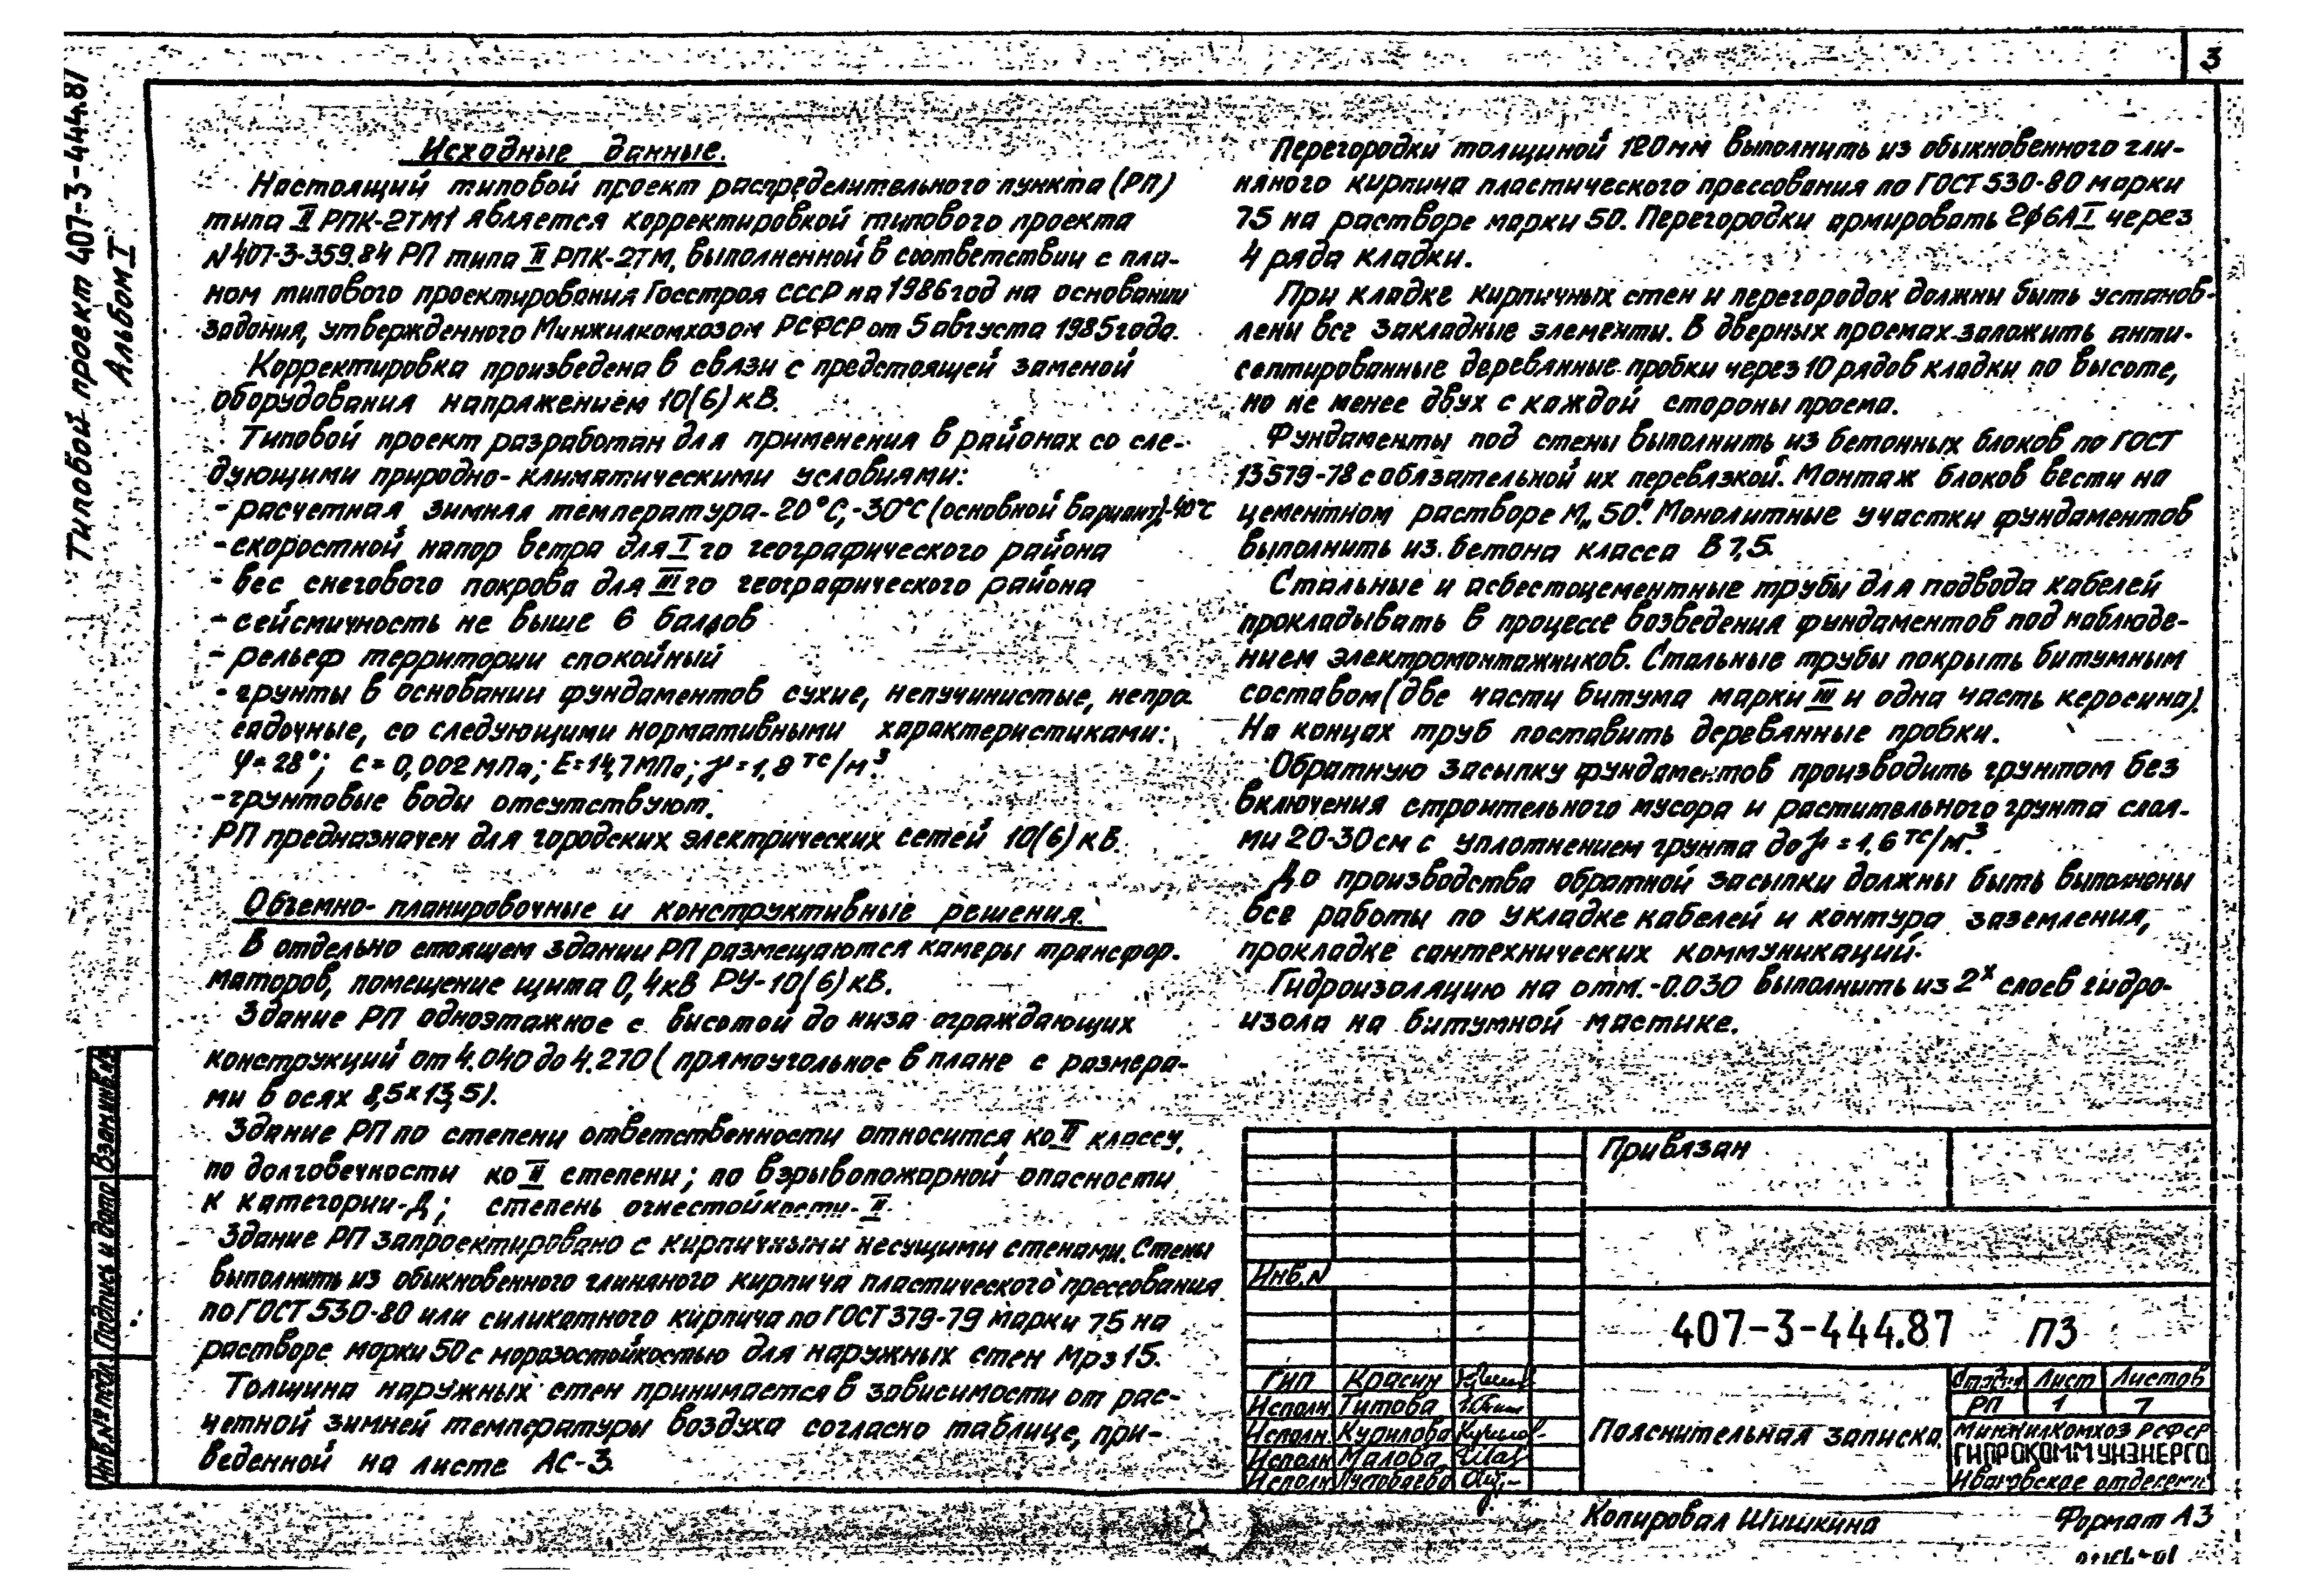 3
Типовой проект 407-3-444.87
Альбом I
Исходные данные.
Настоящий типовой проект распределительного пункта (РП)
типа II РПК-2ТМ1 является корректировкой типового проекта
N407-3-359.84 РП типа II РПК-2ТМ, выполненной в соответствии с пла-
ном типового проектирования Госстроя СССР на 1986 год на основании
задания, утвержденного Минжилкомхозом РСФСР от 5 августа 1985 года.
Корректировка произведена в связи с предстоящей заменой
оборудования напряжением 10(6) кВ.
Типовой проект разработан для применения в районах со сле-
дующими природно-климатическими условиями:
- расчетная зимняя температура -20°С, -30°С (основной вариант), -40°С
- скоростной напор ветра для I го географического района
- вес снегового покрова для III го географического района
- сейсмичность не выше 6 баллов
- рельеф территории спокойный
- грунты в основании фундаментов сухие, непучинистые, непро-
садочные, со следующими нормативными характеристиками:
φ=28°; с=0,002 МПа; Е=14,7 МПа; γ=1,8 тс/м³
- грунтовые воды отсутствуют.
РП предназначен для городских электрических сетей 10(6) кВ.
Объемно-планировочные и конструктивные решения.
В отдельно стоящем здании РП размещаются камеры трансфор-
маторов, помещение щита 0,4кВ РУ-10(6) кВ.
Здание РП одноэтажное с высотой до низа ограждающих
конструкций от 4.040 до 4.270 (прямоугольное в плане с размера-
ми в осях 8,5×13,5).
Здание РП по степени ответственности относится ко II классу,
по долговечности ко II степени; по взрывопожарной опасности
к категории-Д; степень огнестойкости-II.
Здание РП запроектировано с кирпичными несущими стенами. Стены
выполнить из обыкновенного глиняного кирпича пластического прессования
по ГОСТ 530-80 или силикатного кирпича по ГОСТ 379-79 марки 75 на
растворе марки 50 с морозостойкостью для наружных стен Мрз 15.
Толщина наружных стен принимается в зависимости от рас-
четной зимней температуры воздуха согласно таблице, при-
веденной на листе АС-3.
Перегородки толщиной 120мм выполнить из обыкновенного гли-
няного кирпича пластического прессования по ГОСТ 530-80 марки
75 на растворе марки 50. Перегородки армировать 2ф6АI через
4 ряда кладки.
При кладке кирпичных стен и перегородок должны быть установ-
лены все закладные элементы. В дверных проемах заложить анти-
септированные деревянные пробки через 10 рядов кладки по высоте,
но не менее двух с каждой стороны проема.
Фундаменты под стены выполнить из бетонных блоков по ГОСТ
13579-78 с обязательной их перевязкой. Монтаж блоков вести на
цементном растворе М„50". Монолитные участки фундаментов
выполнить из бетона класса В 7,5.
Стальные и асбестоцементные трубы для подвода кабелей
прокладывать в процессе возведения фундаментов под наблюде-
нием электромонтажников. Стальные трубы покрыть битумным
составом (две части битума марки III и одна часть керосина).
На концах труб поставить деревянные пробки.
Обратную засыпку фундаментов производить грунтом без
включения строительного мусора и растительного грунта слоя-
ми 20-30см с уплотнением грунта до γ=1,6 тс/м³.
До производства обратной засыпки должны быть выполнены
все работы по укладке кабелей и контура заземления,
прокладке сантехнических коммуникаций.
Гидроизоляцию на отм.-0.030 выполнить из 2х слоев гидро-
изола на битумной мастике.
Привязан
Инв.N
407-3-444.87 ПЗ
Гип Красин
Исполн Титова
Исполн. Курилова
Исполн Малова
Исполн Пустобаева
Пояснительная записка.
Стадия Лист Листов
РП 1 7
Минжилкомхоз РСФСР
ГИПРОКОММУНЭНЕРГО
Ивановское отделение
Инв.№ подл. Подпись и дата Взам.инв.№
Копировал Шишкина
Формат А3